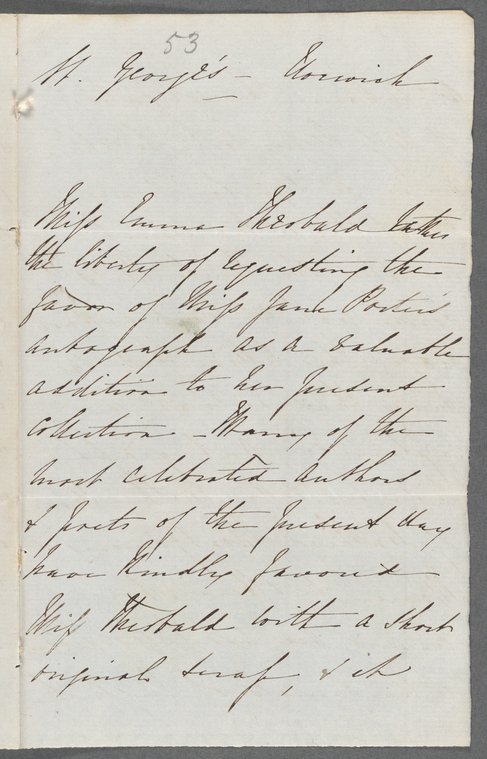 53
St. George's - Norwich
Miss Emma Theobald takes
the liberty of requesting the
favor of Miss Jane Porter's
autograph as a valuable
addition to her present
collection - Many of the
most celebrated authors
& poets of the present day
have kindly favored
Miss Theobald with a short
original scrap, & it